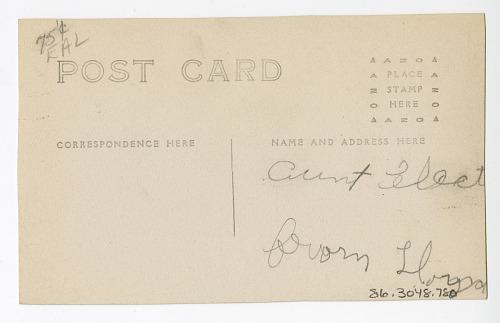 75¢
EAL
POST CARD
AZO
PLACE
STAMP
HERE
AZO
CORRESPONDENCE HERE
NAME AND ADDRESS HERE
Aunt
86.3048.780